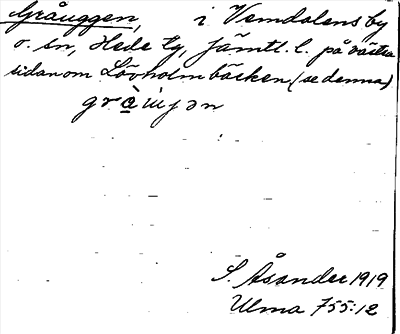 Gråuggen, i Vemdalens by
o. sn, Hede tg, Jämtl. l. på västra
sidan om Lövholmbäcken, (se denna)
S. Åsander 1919
Ulma 755:12